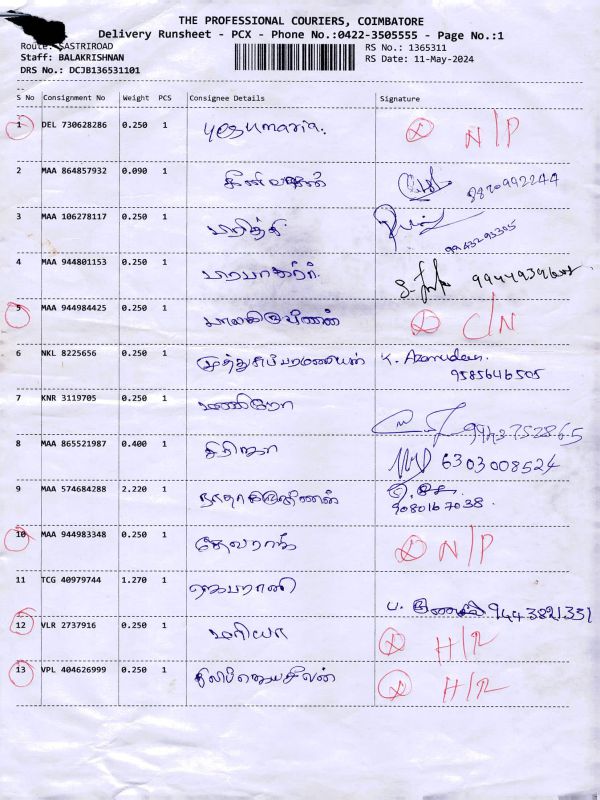 THE PROFESSIONAL COURIERS, COIMBATORE
Delivery Runsheet - PCX - Phone No.:0422-3505555 - Page No.:1
Route: SASTRIROAD
RS No.: 1365311
Staff: BALAKRISHNAN
RS Date: 11-May-2024
DRS No.: DCJB136531101
S No Consignment No Weight PCS Consignee Details Signature
1 DEL 730628286 0.250 1 yesumaria. N/P
2 MAA 864857932 0.090 1 8870992244
3 MAA 106278117 0.250 1 9943293305
4 MAA 944801153 0.250 1
5 MAA 944984425 0.250 1 பாலகிருஷ்ணன் C/N
6 NKL 8225656 0.250 1 முத்துசுப்பரமணியன் K. Azarudeen.
9585646505
7 KNR 3119705 0.250 1
8 MAA 865521987 0.400 1 கிரிஜா 6303008524
9 MAA 574684288 2.220 1 ராதாகிருஷ்ணன்
9080167038.
10 MAA 944983348 0.250 1 தேவராஜ் N/P
11 TCG 40979744 1.270 1 ஜெபராணி
9443821351
12 VLR 2737916 0.250 1 மரியா H/R
13 VPL 404626999 0.250 1 H/R